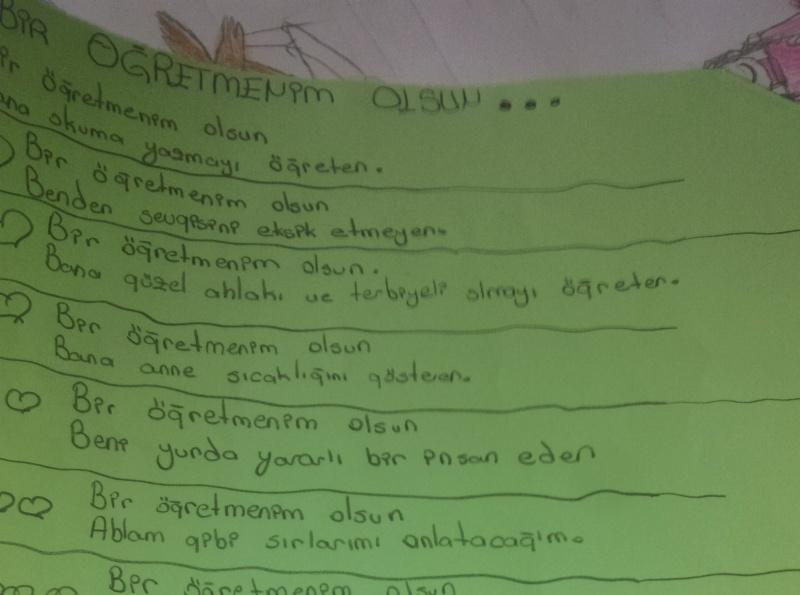 BİR ÖĞRETMENİM OLSUN...
öğretmenim olsun
okuma yazmayı öğreten.
Bir öğretmenim olsun
Benden sevgisini eksik etmeyen.
Bir öğretmenim olsun.
Bana güzel ahlakı ve terbiyeli olmayı öğreten.
Bir öğretmenim olsun
Bana anne sıcaklığını gösteren.
Bir öğretmenim olsun
Beni yurda yararlı bir insan eden
Bir öğretmenim olsun
Ablam gibi sırlarımı anlatacağım.
Bir öğretmenim olsun